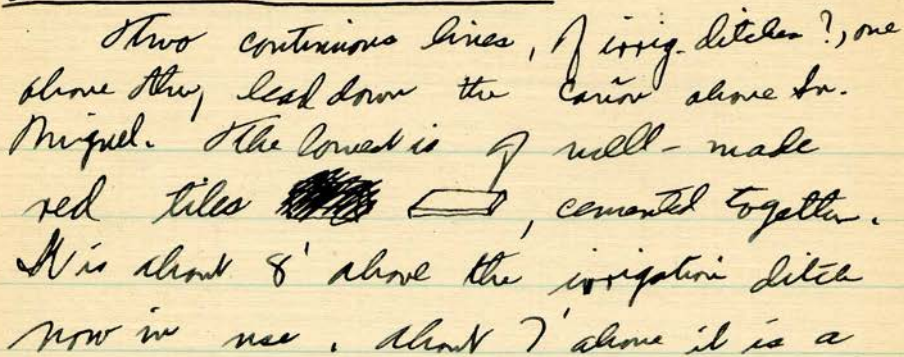 Two continuous lines, of irrig. ditches?, one
above other, lead down the cañon above Sn.
Miguel. The lowest is of well-made
red tiles , cemented together.
It is about 8' above the irrigation ditch
now in use. About 7' above it is a